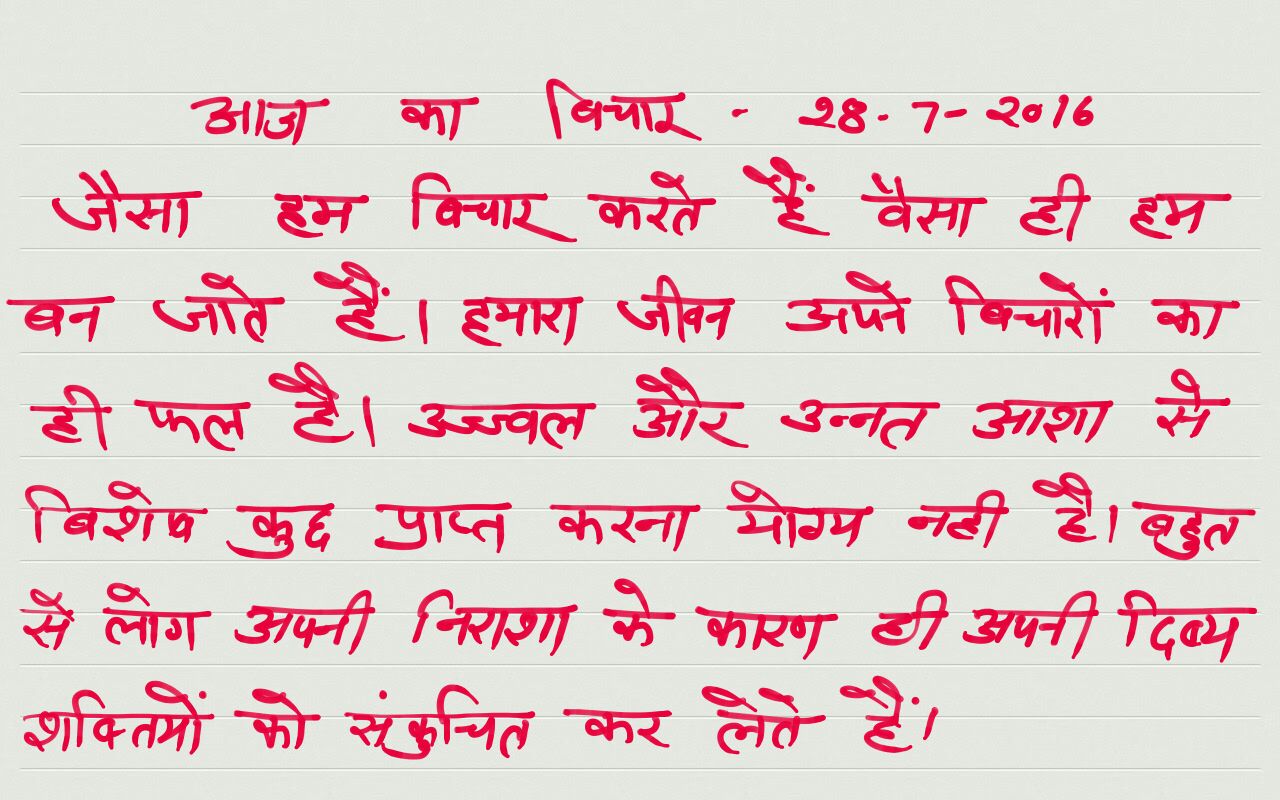 आज का विचार - 28-7-2016
जैसा हम विचार करते हैं वैसा ही हम
बन जाते हैं। हमारा जीवन अपने विचारों का
ही फल है। उज्ज्वल और उन्नत आशा से
विशेष कुछ प्राप्त करना योग्य नही है। बहुत
से लोग अपनी निराशा के कारण ही अपनी दिव्य
शक्तियों को संकुचित कर लेते हैं।